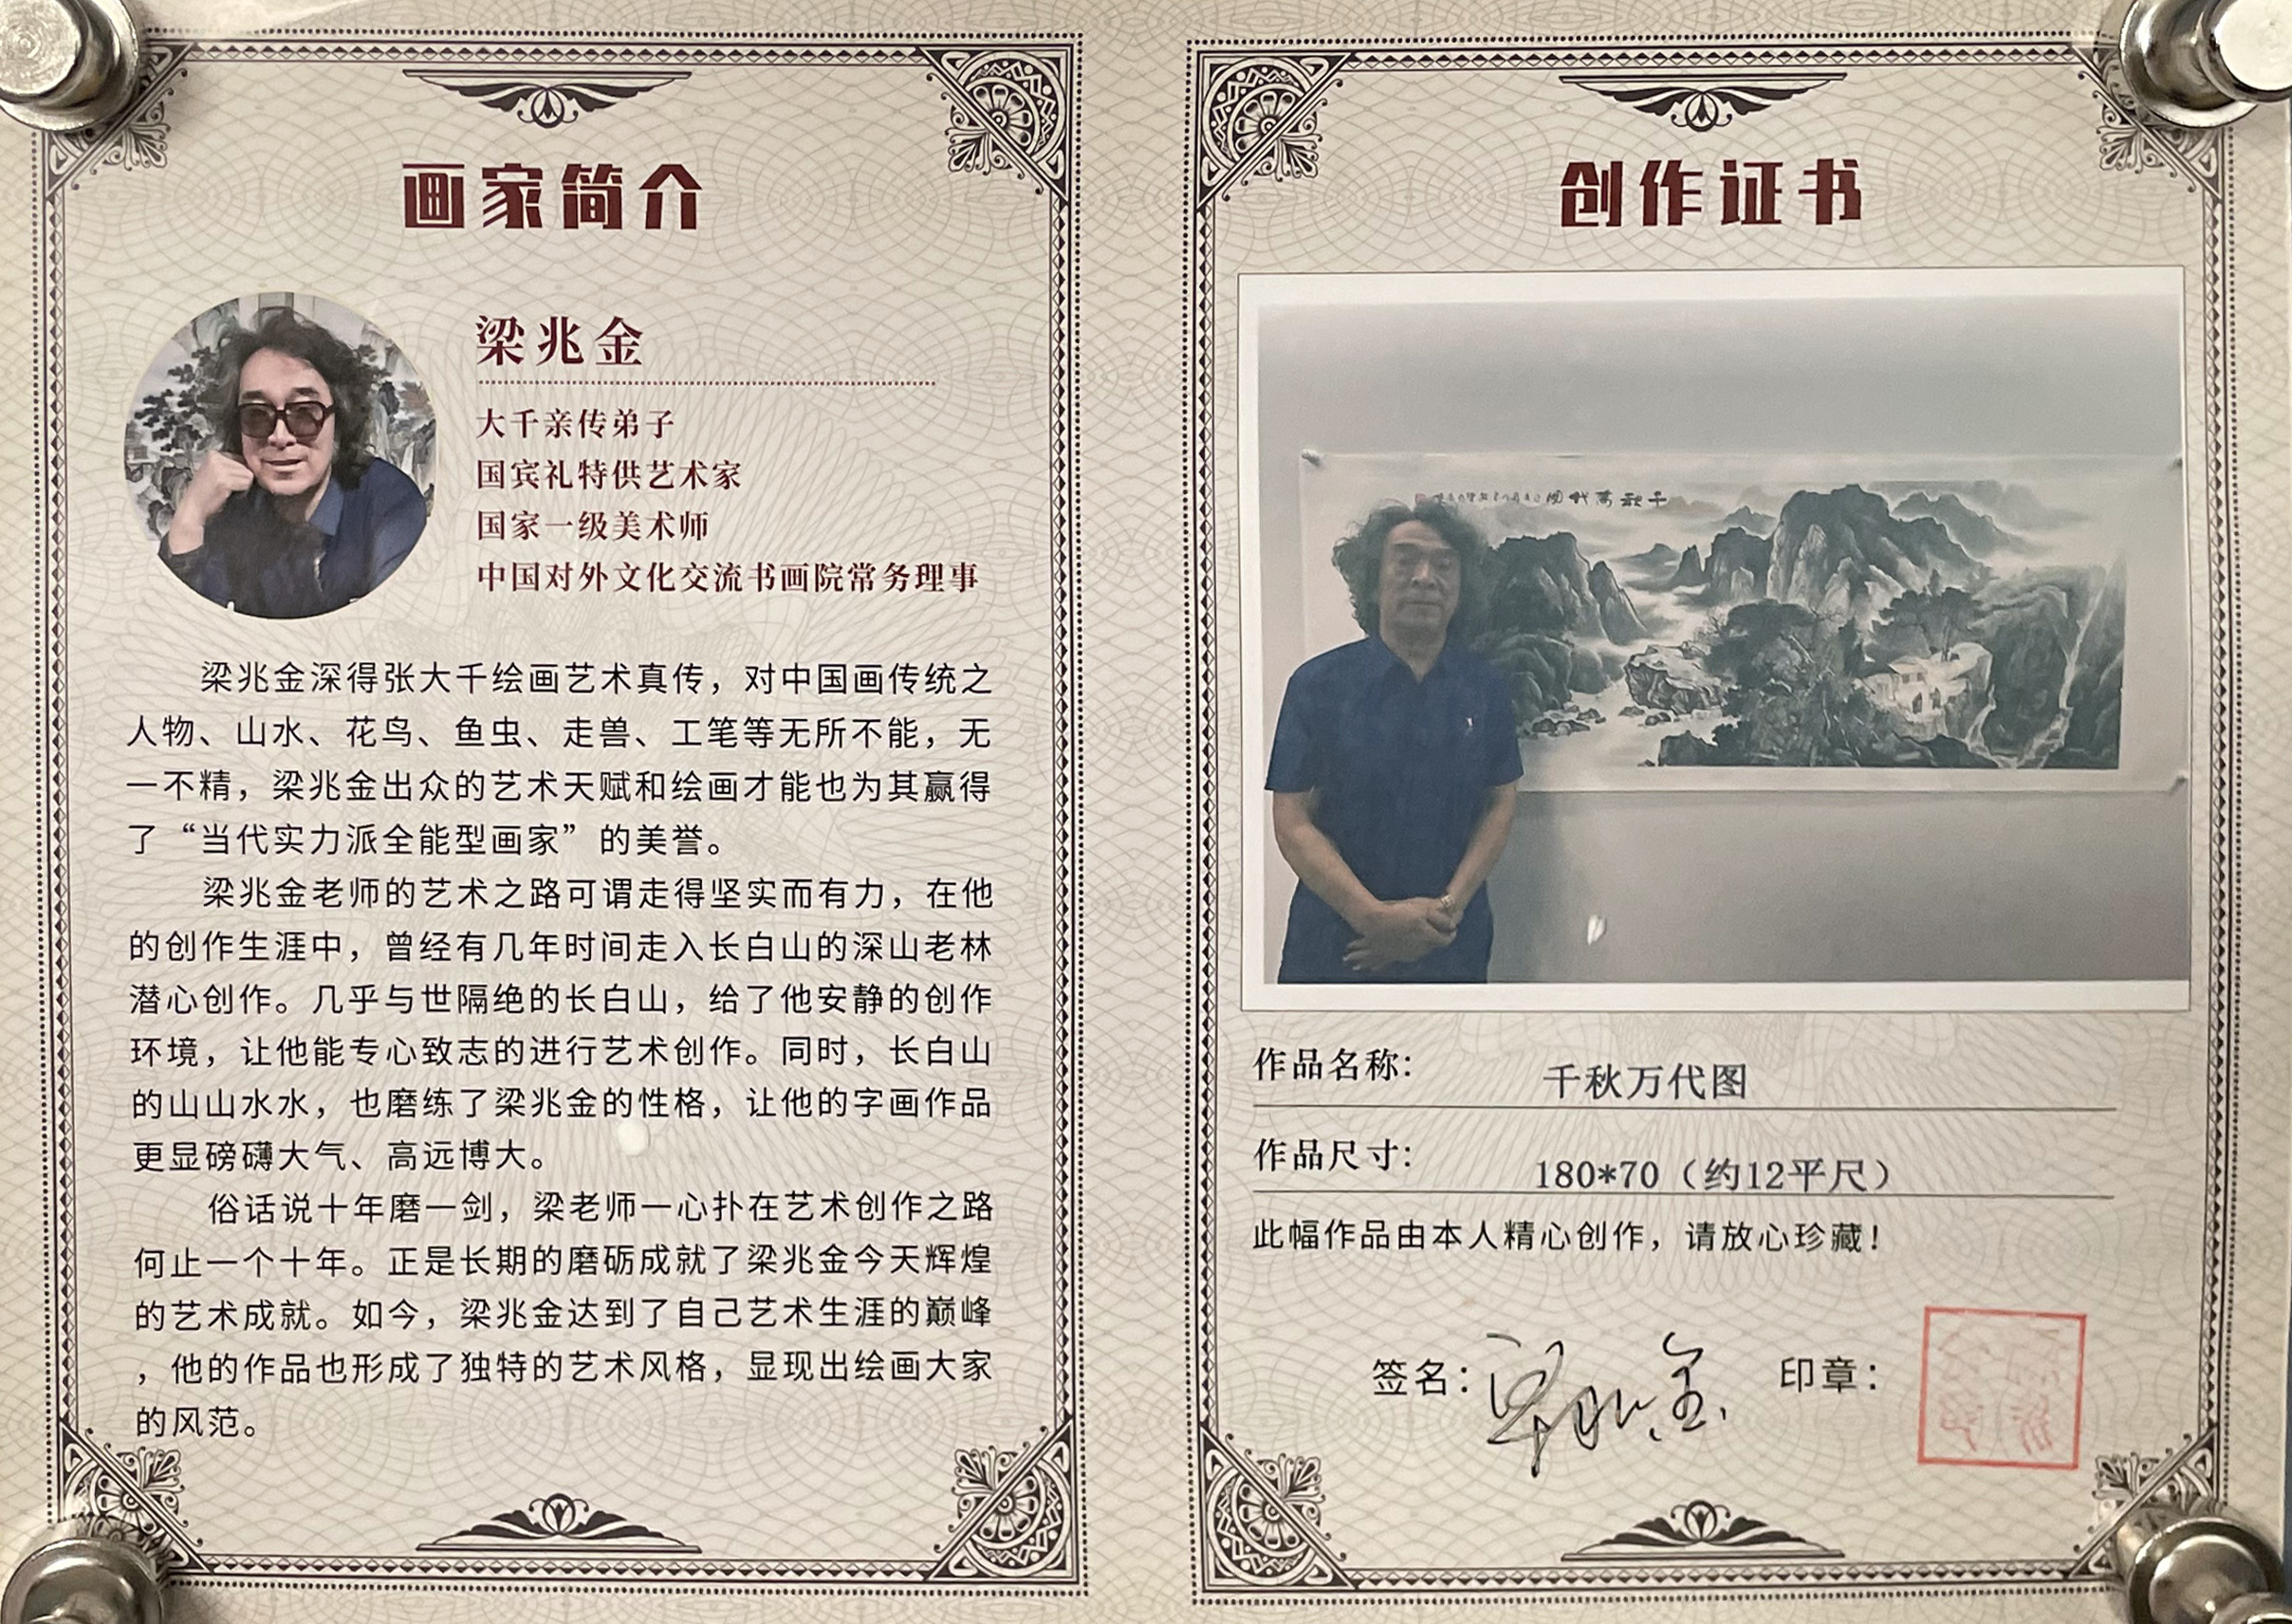 画家简介
梁兆金
大千亲传弟子
国宾礼特供艺术家
国家一级美术师
中国对外文化交流书画院常务理事
梁兆金深得张大千绘画艺术真传，对中国画传统之
人物、山水、花鸟、鱼虫、走兽、工笔等无所不能，无
一不精，梁兆金出众的艺术天赋和绘画才能也为其赢得
了“当代实力派全能型画家”的美誉。
梁兆金老师的艺术之路可谓走得坚实而有力，在他
的创作生涯中，曾经有几年时间走入长白山的深山老林
潜心创作。几乎与世隔绝的长白山，给了他安静的创作
环境，让他能专心致志的进行艺术创作。同时，长白山
的山山水水，也磨练了梁兆金的性格，让他的字画作品
更显磅礴大气、高远博大。
俗话说十年磨一剑，梁老师一心扑在艺术创作之路
何止一个十年。正是长期的磨砺成就了梁兆金今天辉煌
的艺术成就。如今，梁兆金达到了自己艺术生涯的巅峰
，他的作品也形成了独特的艺术风格，显现出绘画大家
的风范。
创作证书
千秋萬代图
作品名称：
千秋万代图
作品尺寸：
180*70（约12平尺）
此幅作品由本人精心创作，请放心珍藏！
签名：梁兆金
印章：